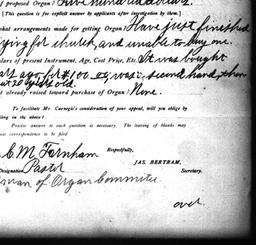 proposed Organ?
(This question is for explicit answer by applicants after investigation by them.)
What arrangements made for getting Organ? Have just finished
paying for church, and unable to buy one.
Particulars of present Instrument, Age, Cost Price, Etc. It was bought
ago for $100.00, was second hand, then
20 years old.
already raised toward purchase of Organ? None.
To facilitate Mr. Carnegie's consideration of your appeal, will you oblige by
filling in the above?
Precise answer to each question is necessary. The leaving of blanks may
correspondence to be filed
Respectfully,
C M Farnham JAS. BERTRAM,
Designation Pastor Secretary.
of Organ Committee
over